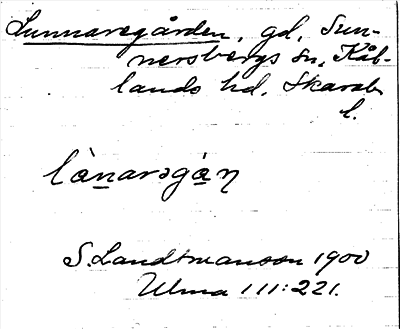 Lunnaregården, gd, Sun-
nersbergs sn, Kåk-
lands hd. Skarab
l.
là̱naregà̱ŋ
S Landtmanson 1900
Ulma 111:221.